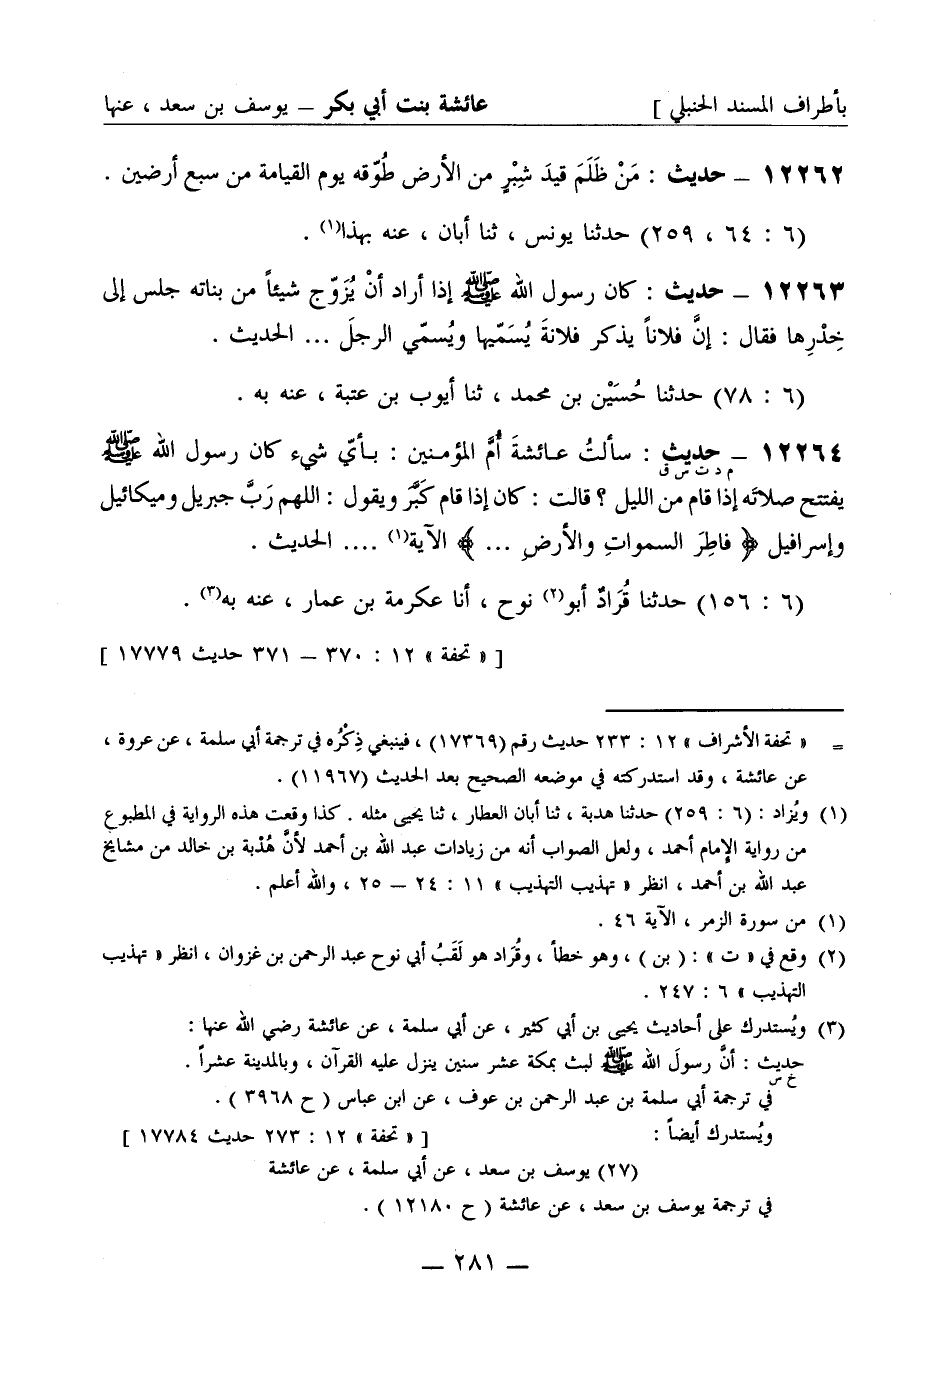 بأطراف المسند الحنبلي ] عائشة بنت أبي بكر – يوسف بن سعد ، عنها
١٢٢٦٢ – حديث : مَنْ ظَلَمَ قيدَ شِبْرٍ من الأرض طُوّقه يوم القيامة من سبع أرضين .
(٦ : ٦٤ ، ٢٥٩) حدثنا يونس ، ثنا أبان ، عنه بهذا(١) .
١٢٢٦٣ – حديث : كان رسول الله ﷺ إذا أراد أنْ يُزَوّج شيئاً من بناته جلس إلى
خِدْرِها فقال : إنَّ فلاناً يذكر فلانةَ يُسَمّيها ويُسمّي الرجلَ ... الحديث .
(٦ : ٧٨) حدثنا حُسَيْن بن محمد ، ثنا أيوب بن عتبة ، عنه به .
١٢٢٦٤ – حديث : سألتُ عائشةَ أُمَّ المؤمنين : بأيّ شيء كان رسول الله ﷺ
م د ت س ق
يفتتح صلاتَه إذا قام من الليل ؟ قالت : كان إذا قام كَبَّرَ ويقول : اللهم رَبَّ جبريل وميكائيل
وإسرافيل ﴿ فاطِرَ السموات والأرضِ ... ﴾ الآية(١) .... الحديث .
(٦ : ١٥٦) حدثنا قُرَادٌ أبو(٢) نوح ، أنا عكرمة بن عمار ، عنه به(٣) .
[ « تحفة » ١٢ : ٣٧٠ – ٣٧١ حديث ١٧٧٧٩ ]
= « تحفة الأشراف » ١٢ : ٢٣٣ حديث رقم (١٧٣٦٩) ، فينبغي ذِكْرُه في ترجمة أبي سلمة ، عن عروة ،
عن عائشة ، وقد استدركته في موضعه الصحيح بعد الحديث (١١٩٦٧) .
(١) ويُزاد : (٦ : ٢٥٩) حدثنا هدبة ، ثنا أبان العطار ، ثنا يحيى مثله . كذا وقعت هذه الرواية في المطبوع
من رواية الإمام أحمد ، ولعل الصواب أنه من زيادات عبد الله بن أحمد لأنَّ هُدْبة بن خالد من مشايخ
عبد الله بن أحمد ، انظر « تهذيب التهذيب » ١١ : ٢٤ – ٢٥ ، والله أعلم .
(١) من سورة الزمر ، الآية ٤٦ .
(٢) وقع في « ت » : ( بن ) ، وهو خطأ ، وقُرَاد هو لَقَبُ أبي نوح عبد الرحمن بن غزوان ، انظر « تهذيب
التهذيب » ٦ : ٢٤٧ .
(٣) ويُستدرك على أحاديث يحيى بن أبي كثير ، عن أبي سلمة ، عن عائشة رضي الله عنها :
حديث : أنَّ رسولَ الله ﷺ لبث بمكة عشر سنين ينزل عليه القرآن ، وبالمدينة عشراً .
خ س
في ترجمة أبي سلمة بن عبد الرحمن بن عوف ، عن ابن عباس ( ح ٣٩٦٨ ) .
ويُستدرك أيضاً : [ « تحفة » ١٢ : ٢٧٣ حديث ١٧٧٨٤ ]
(٢٧) يوسف بن سعد ، عن أبي سلمة ، عن عائشة
في ترجمة يوسف بن سعد ، عن عائشة ( ح ١٢١٨٠ ) .
– ٢٨١ –